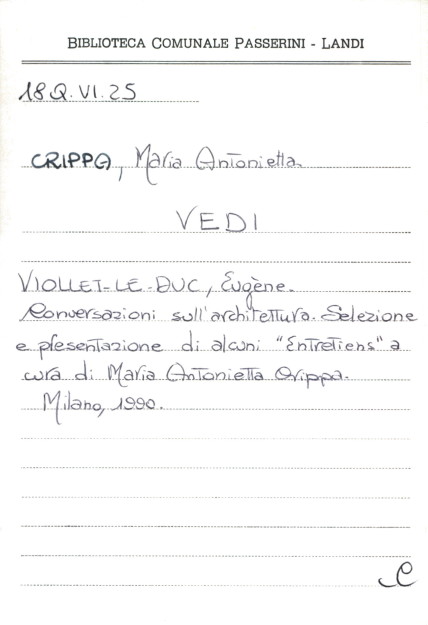 BIBLIOTECA COMUNALE PASSERINI - LANDI
18 Q. VI. 25
CRIPPA, Maria Antonietta
VEDI
VIOLLET-LE-DUC, Eugène.
Conversazioni sull'architettura. Selezione
e presentazione di alcuni "Entretiens" a
cura di Maria Antonietta Crippa.
Milano, 1990.
C